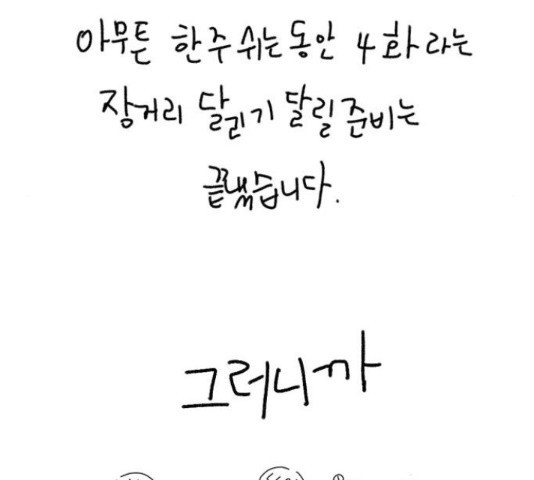 아무튼 한주 쉬는동안 4화라는
장거리 달리기 달릴준비는
끝냈습니다.
그러니까